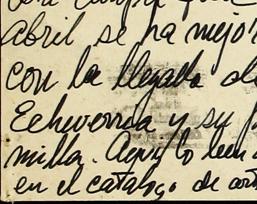 abril se ha mejor
con la llegada de
Echeverría y su
milla. Aquí lo leen
en el catalogo de cort